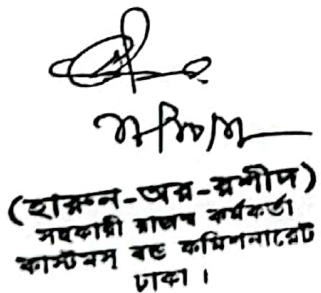 (হারুন-অর-রশীদ)
সহকারী রাজস্ব কর্মকর্তা
কাস্টমস্ বন্ড কমিশনারেট
ঢাকা।